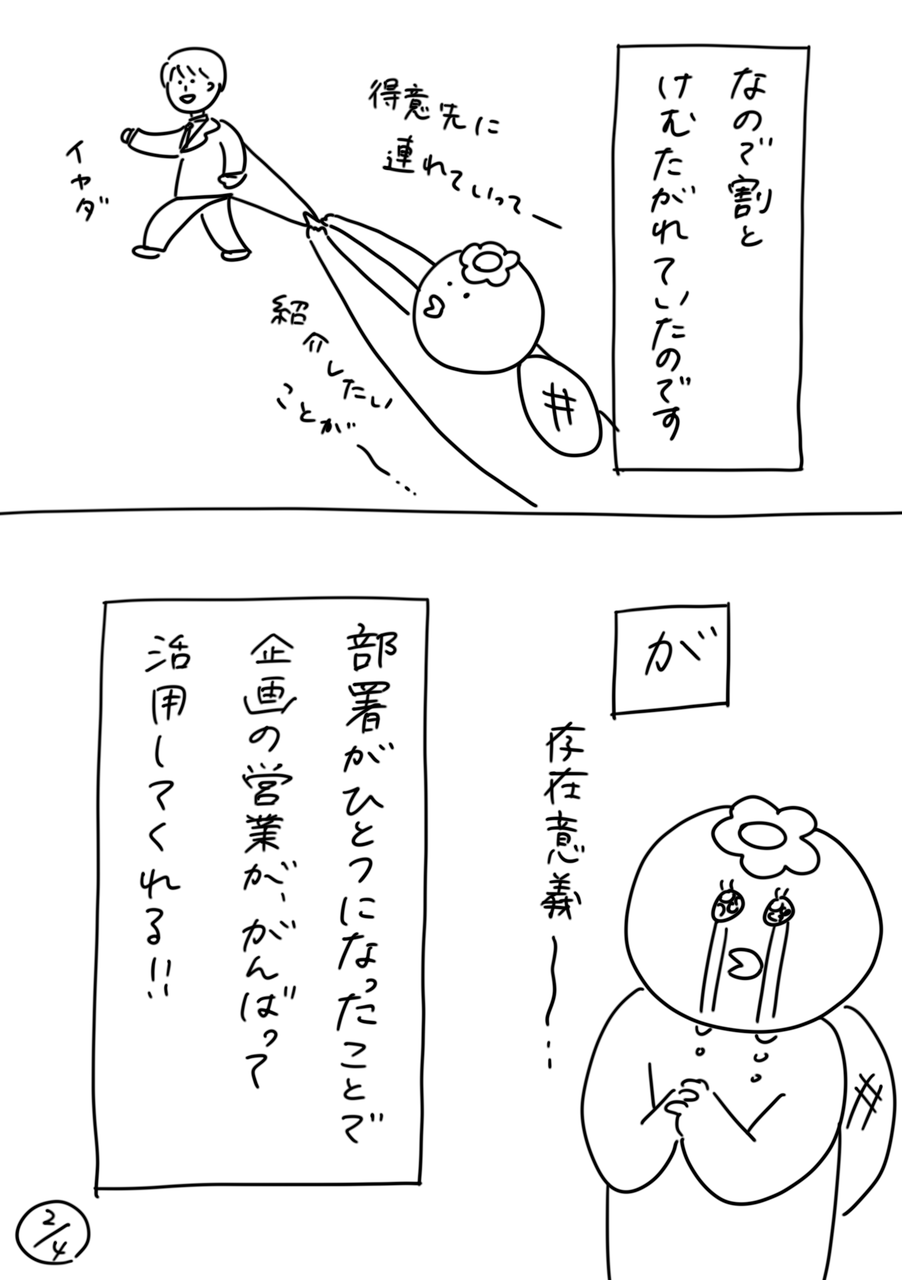 なので割と
けむたがれていたのです
得意先に
連れていってー
イヤダ
紹介したい
ことが〜…
が
存在意義〜…
部署がひとつになったことで
企画の営業が、がんばって
活用してくれる!!
2/4